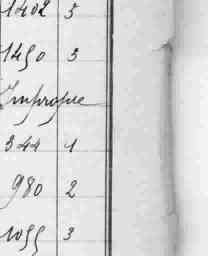 1402 5
1450 3
Impropre
344 1
980 2
1055 3